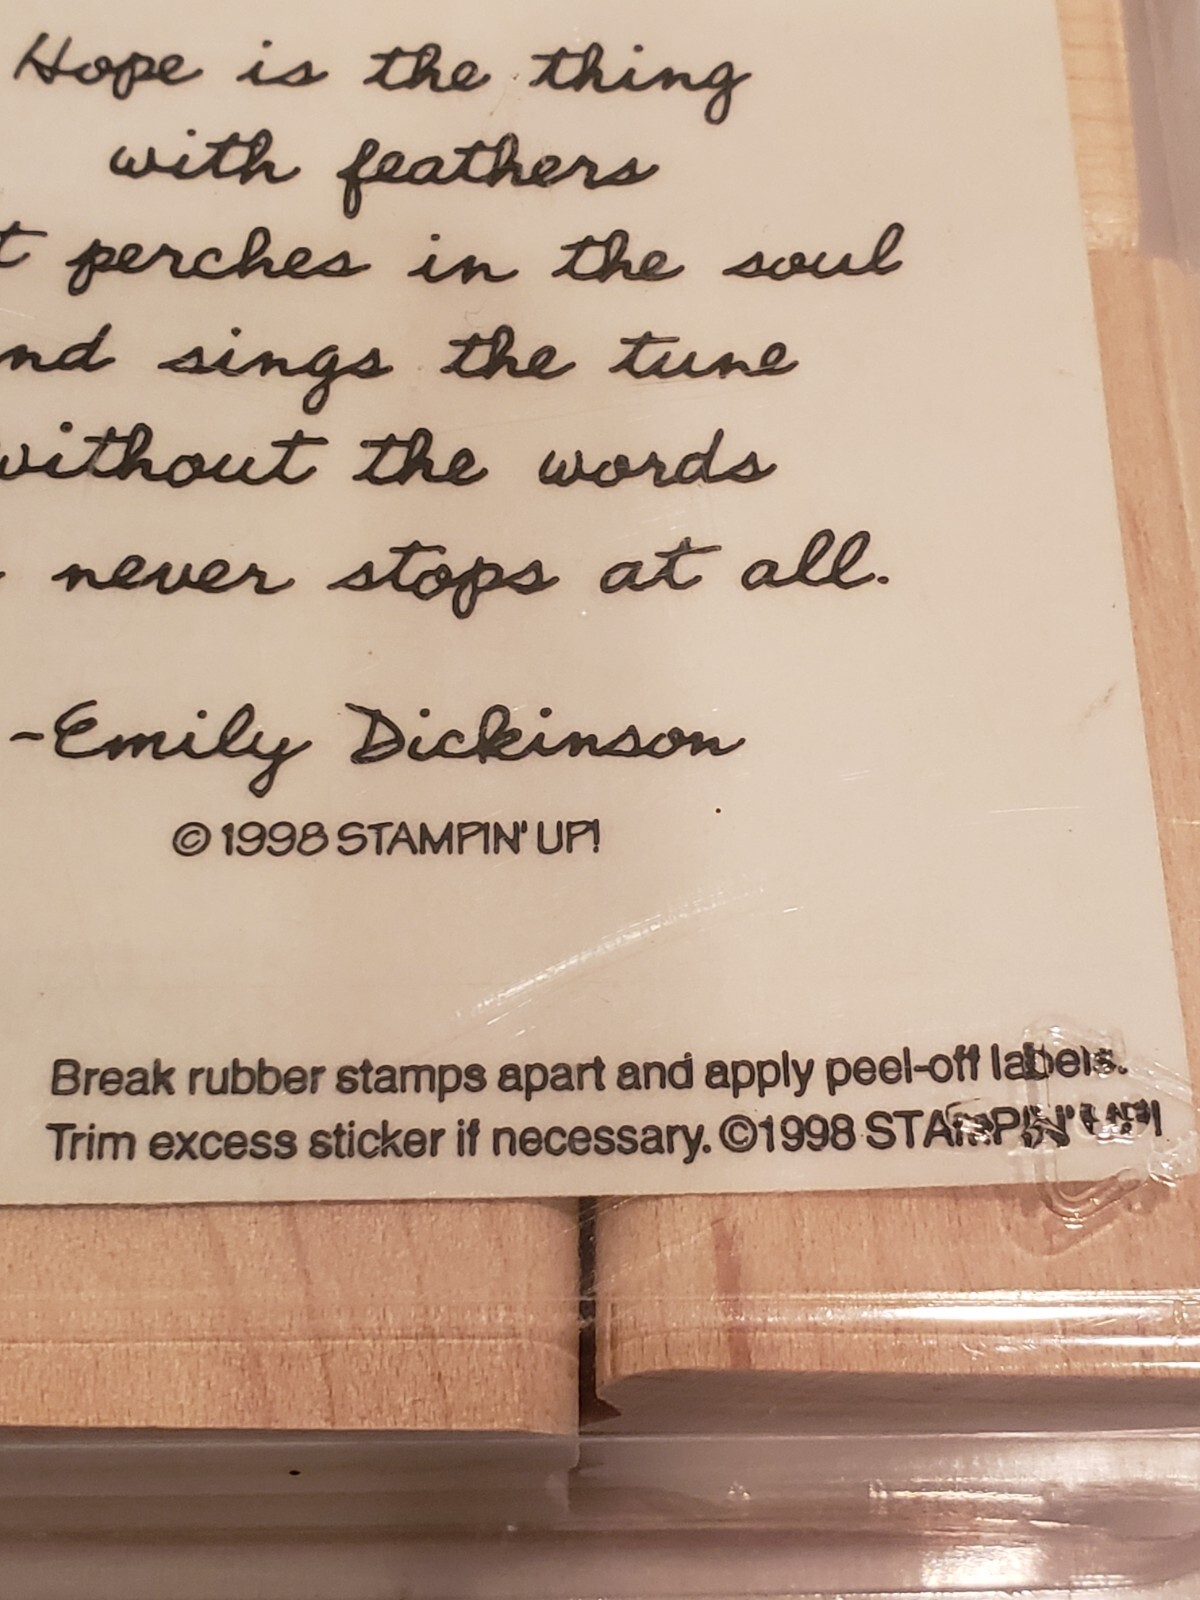 Hope is the thing
with feathers
t perches in the soul
nd sings the tune
without the words
never stops at all.
~Emily Dickinson
©1998 STAMPIN' UP!
Break rubber stamps apart and apply peel-off labels.
Trim excess sticker if necessary. ©1998 STAMPIN' UP!